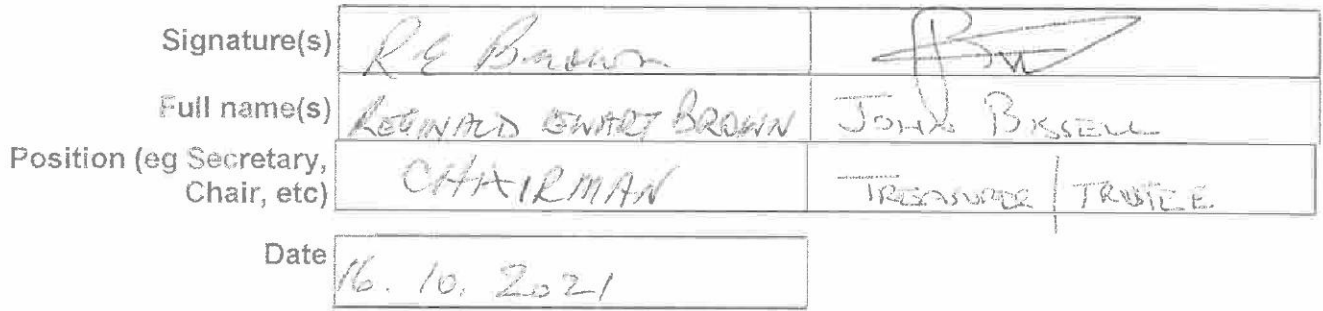 Signature(s) R E Brown
Full name(s) REGINALD EWART BROWN JOHN BISSELL
Position (eg Secretary, CHAIRMAN TREASURER / TRUSTEE
Chair, etc)
Date 16. 10. 2021